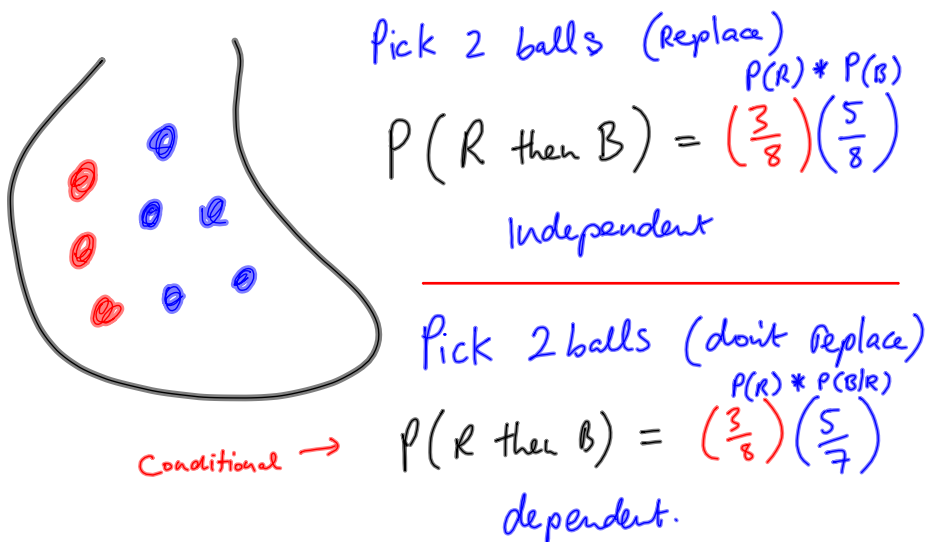 Pick 2 balls (Replace)
P(R) * P(B)
P(R then B) = (3/8)(5/8)
Independent
Pick 2 balls (don't replace)
P(R) * P(B/R)
Conditional → P(R then B) = (3/8)(5/7)
dependent.